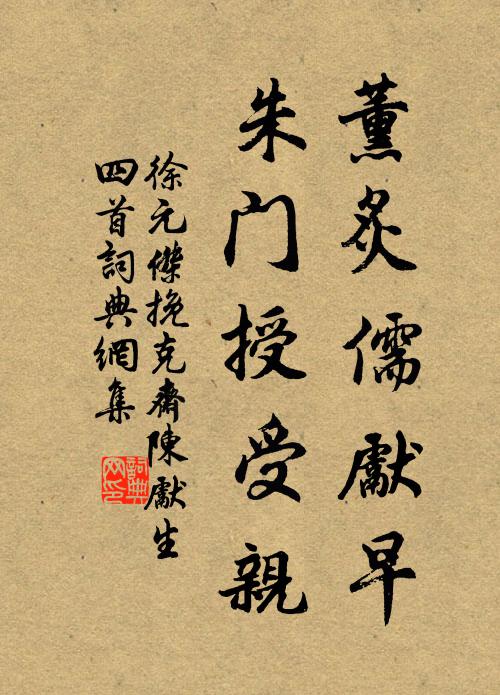 薰炙儒獻早
朱门授受親
徐元傑挽克齋陳獻生
四首詞典網集
詞典网印